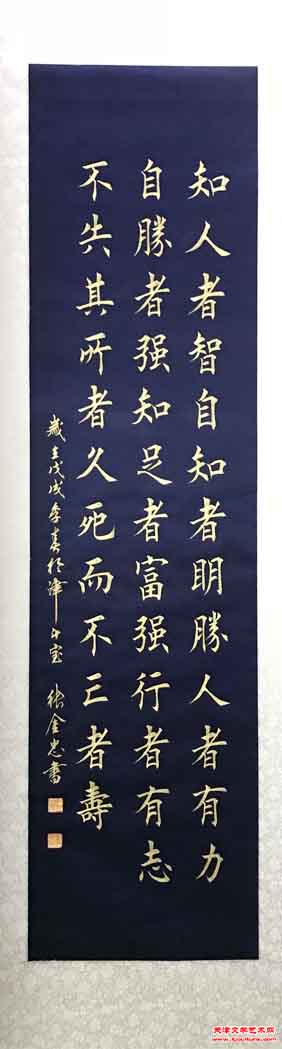 知人者智自知者明勝人者有力
自勝者强知足者富强行者有志
不失其所者久死而不亡者壽
歲在戊戌季春於津
张金忠書
天津文学艺术网
www.tjculture.com